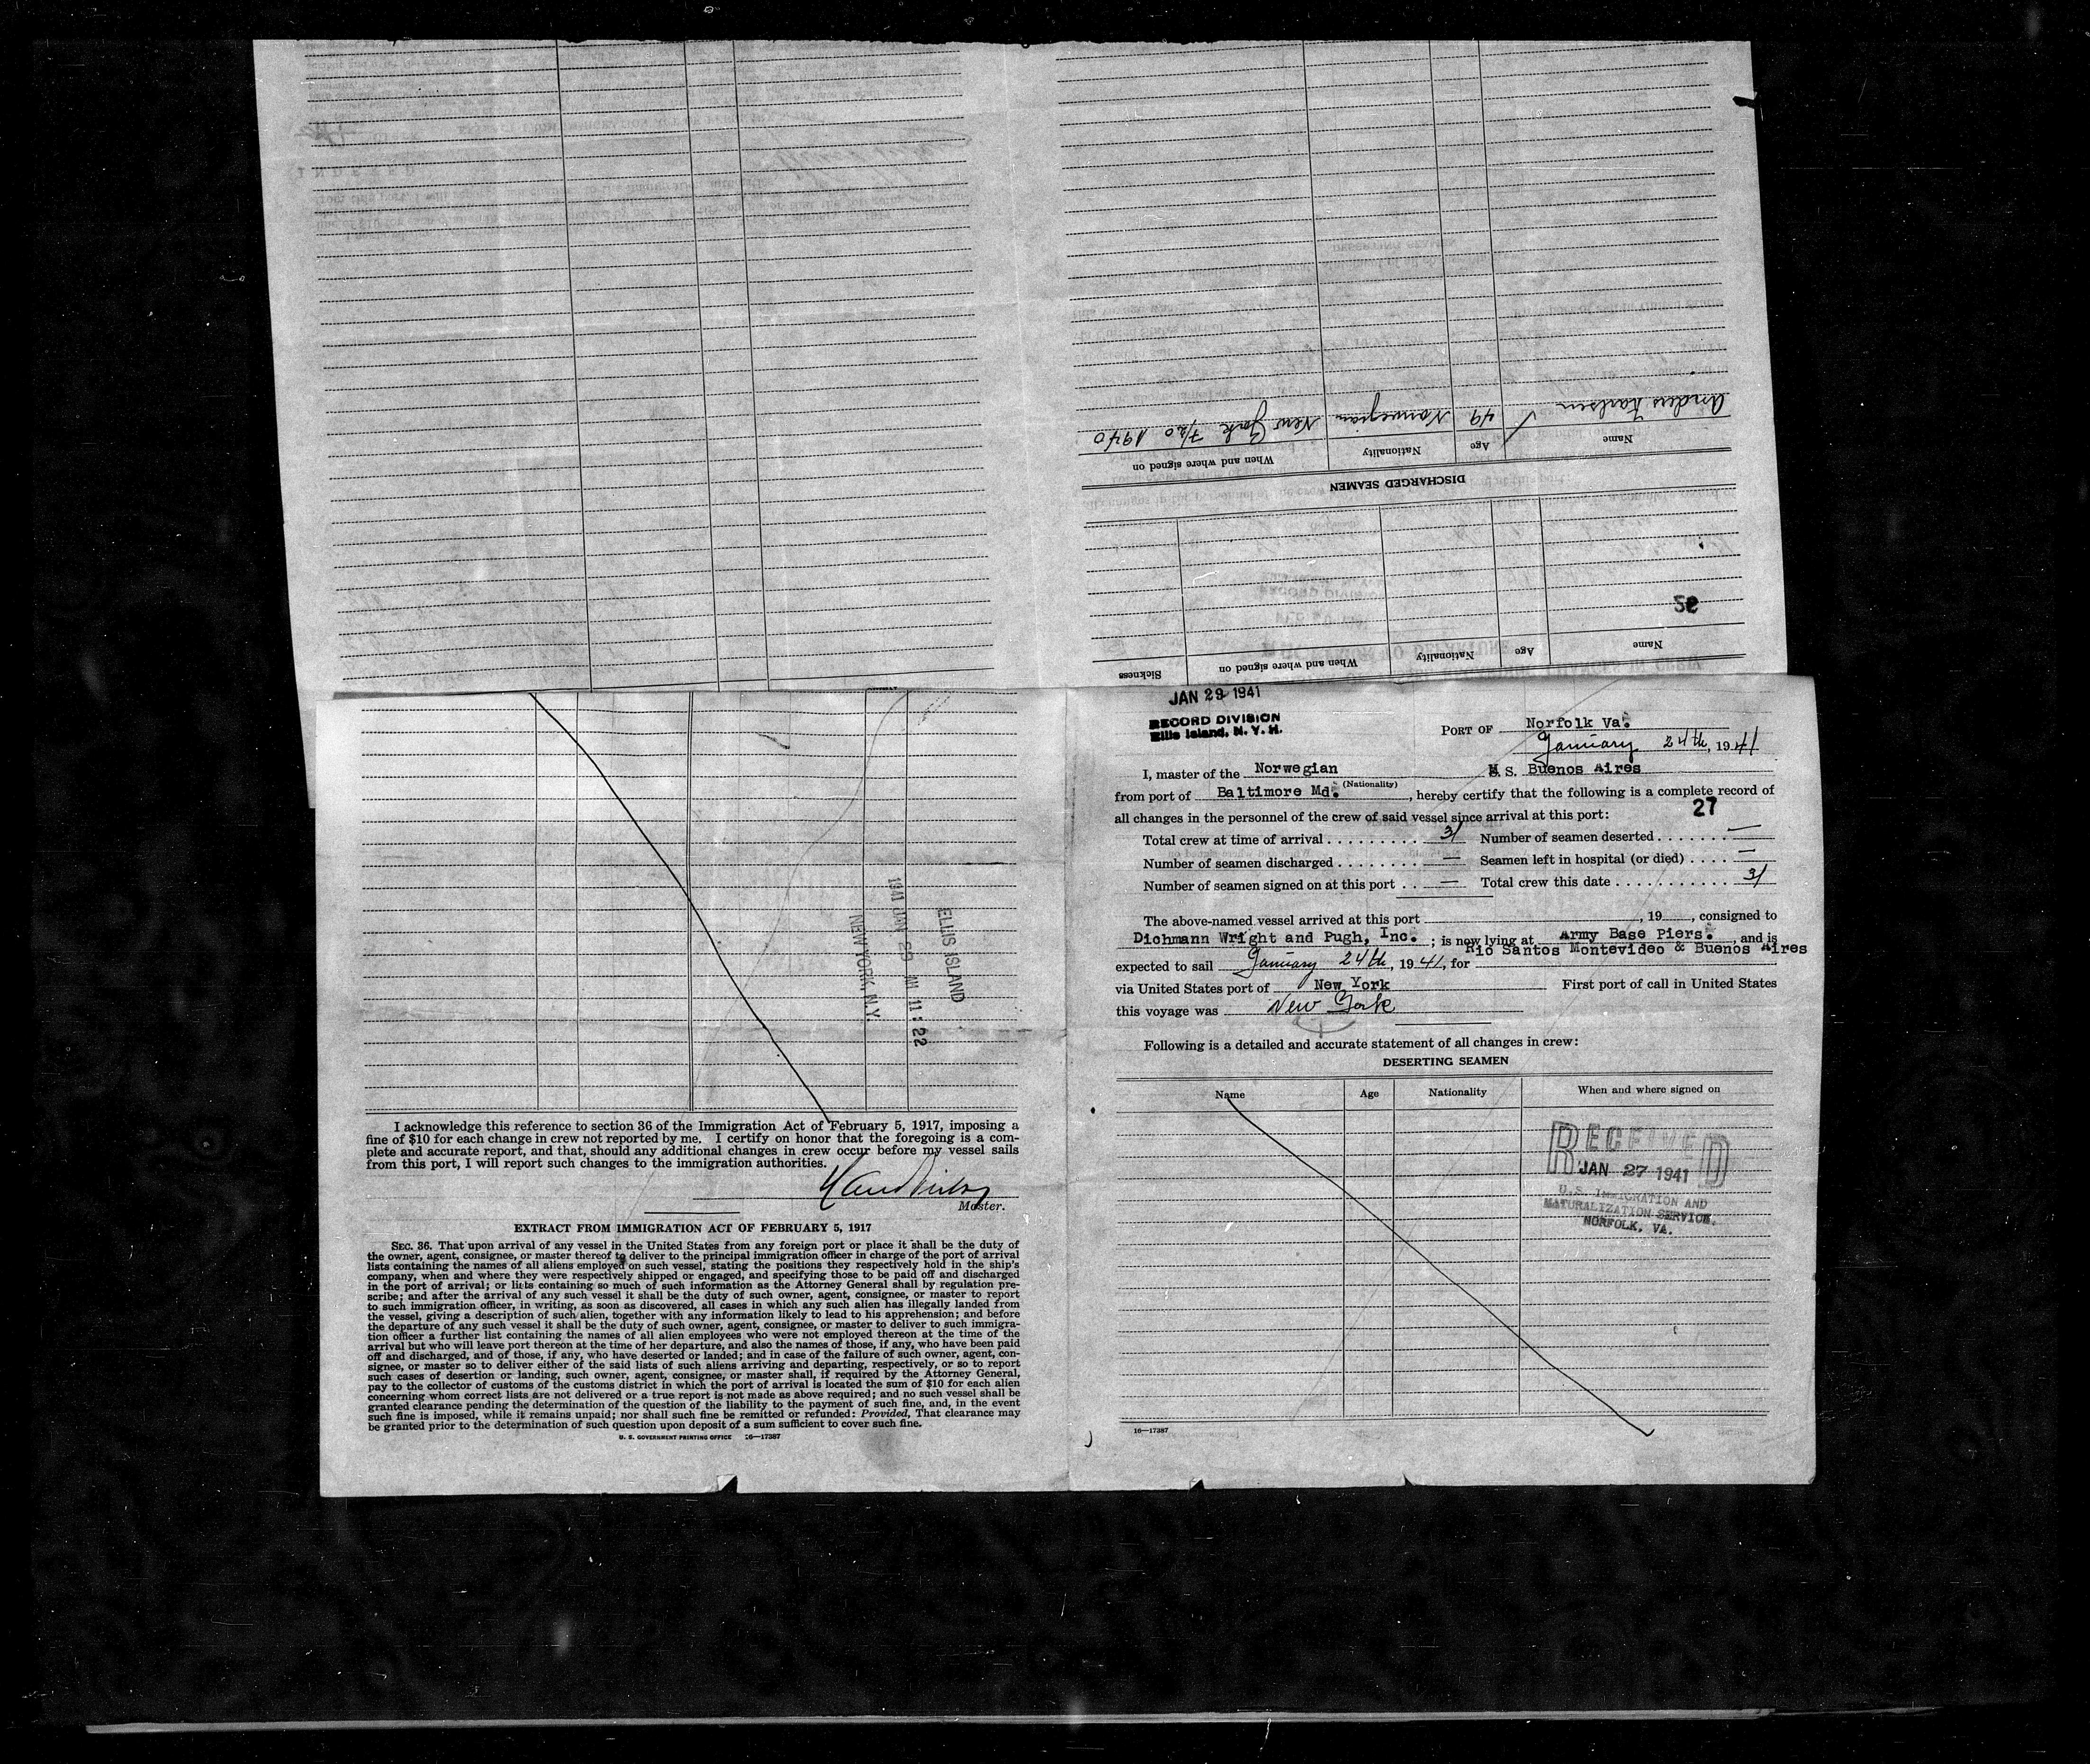 Anders Karlsen 49 Norwegian New York 7/20 1940
Name Age Nationality When and where signed on
DISCHARGED SEAMEN
Name Age Nationality When and where signed on Sickness
JAN 29 1941
RECORD DIVISION
Ellis Island, N. Y. H.
PORT OF Norfolk Va.
January 24th, 1941
I, master of the Norwegian M. S. Buenos Aires
(Nationality)
from port of Baltimore Md. , hereby certify that the following is a complete record of
27
all changes in the personnel of the crew of said vessel since arrival at this port:
Total crew at time of arrival . . . . . . . . . 31 Number of seamen deserted . . . . . . . —
Number of seamen discharged . . . . . . . — Seamen left in hospital (or died) . . . . —
Number of seamen signed on at this port . . — Total crew this date . . . . . . . . . . . 31
The above-named vessel arrived at this port , 19 , consigned to
Dichmann Wright and Pugh, Inc. ; is now lying at Army Base Piers. , and is
Rio Santos Montevideo & Buenos Aires
expected to sail January 24th, 1941, for
via United States port of New York First port of call in United States
this voyage was New York
Following is a detailed and accurate statement of all changes in crew:
DESERTING SEAMEN
Name Age Nationality When and where signed on
RECEIVED
JAN 27 1941
U.S. IMMIGRATION AND
NATURALIZATION SERVICE.
NORFOLK, VA.
16—17387
ELLIS ISLAND
1941 JAN 29 AM 11:22
NEW YORK, N.Y.
I acknowledge this reference to section 36 of the Immigration Act of February 5, 1917, imposing a
fine of $10 for each change in crew not reported by me. I certify on honor that the foregoing is a com-
plete and accurate report, and that, should any additional changes in crew occur before my vessel sails
from this port, I will report such changes to the immigration authorities.
Master.
EXTRACT FROM IMMIGRATION ACT OF FEBRUARY 5, 1917
SEC. 36. That upon arrival of any vessel in the United States from any foreign port or place it shall be the duty of
the owner, agent, consignee, or master thereof to deliver to the principal immigration officer in charge of the port of arrival
lists containing the names of all aliens employed on such vessel, stating the positions they respectively hold in the ship's
company, when and where they were respectively shipped or engaged, and specifying those to be paid off and discharged
in the port of arrival; or lists containing so much of such information as the Attorney General shall by regulation pre-
scribe; and after the arrival of any such vessel it shall be the duty of such owner, agent, consignee, or master to report
to such immigration officer, in writing, as soon as discovered, all cases in which any such alien has illegally landed from
the vessel, giving a description of such alien, together with any information likely to lead to his apprehension; and before
the departure of any such vessel it shall be the duty of such owner, agent, consignee, or master to deliver to such immigra-
tion officer a further list containing the names of all alien employees who were not employed thereon at the time of the
arrival but who will leave port thereon at the time of her departure, and also the names of those, if any, who have been paid
off and discharged, and of those, if any, who have deserted or landed; and in case of the failure of such owner, agent, con-
signee, or master so to deliver either of the said lists of such aliens arriving and departing, respectively, or so to report
such cases of desertion or landing, such owner, agent, consignee, or master shall, if required by the Attorney General,
pay to the collector of customs of the customs district in which the port of arrival is located the sum of $10 for each alien
concerning whom correct lists are not delivered or a true report is not made as above required; and no such vessel shall be
granted clearance pending the determination of the question of the liability to the payment of such fine, and, in the event
such fine is imposed, while it remains unpaid; nor shall such fine be remitted or refunded: Provided, That clearance may
be granted prior to the determination of such question upon deposit of a sum sufficient to cover such fine.
U. S. GOVERNMENT PRINTING OFFICE 16—17387